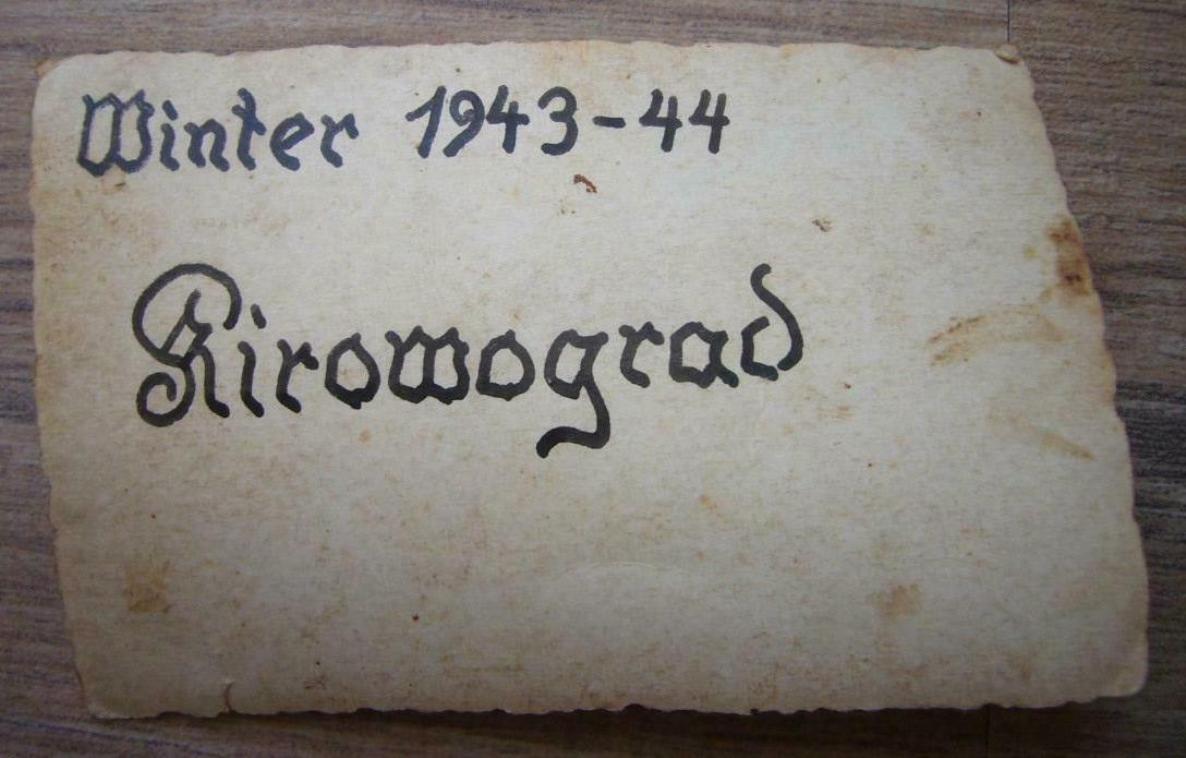 Winter 1943-44
Kirowograd